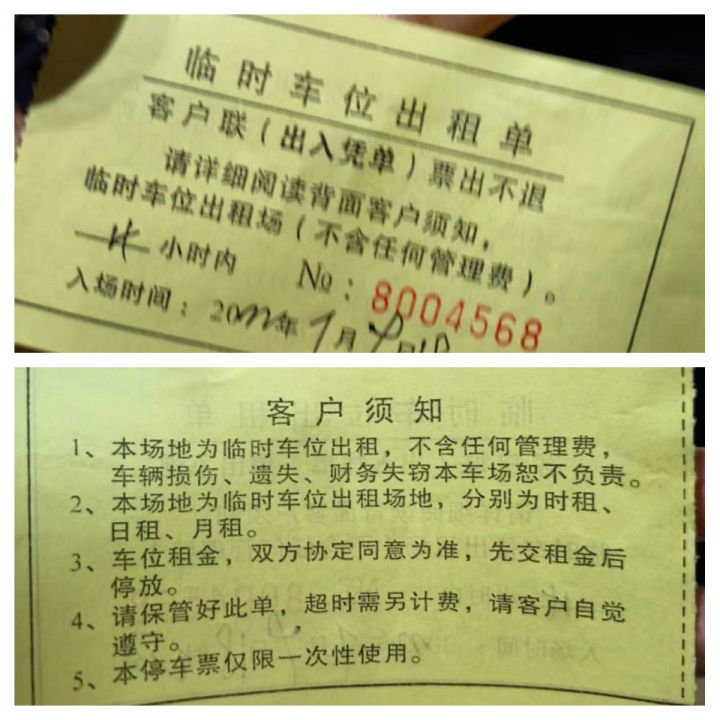 临时车位出租单
客户联（出入凭单）票出不退
请详细阅读背面客户须知，
临时车位出租场（不含任何管理费）。
小时内 №：8004568
入场时间：20 年 月 日
客户须知
1、本场地为临时车位出租，不含任何管理费，
车辆损伤、遗失、财务失窃本车场恕不负责。
2、本场地为临时车位出租场地，分别为时租、
日租、月租。
3、车位租金，双方协定同意为准，先交租金后
停放。
4、请保管好此单，超时需另计费，请客户自觉
遵守。
5、本停车票仅限一次性使用。